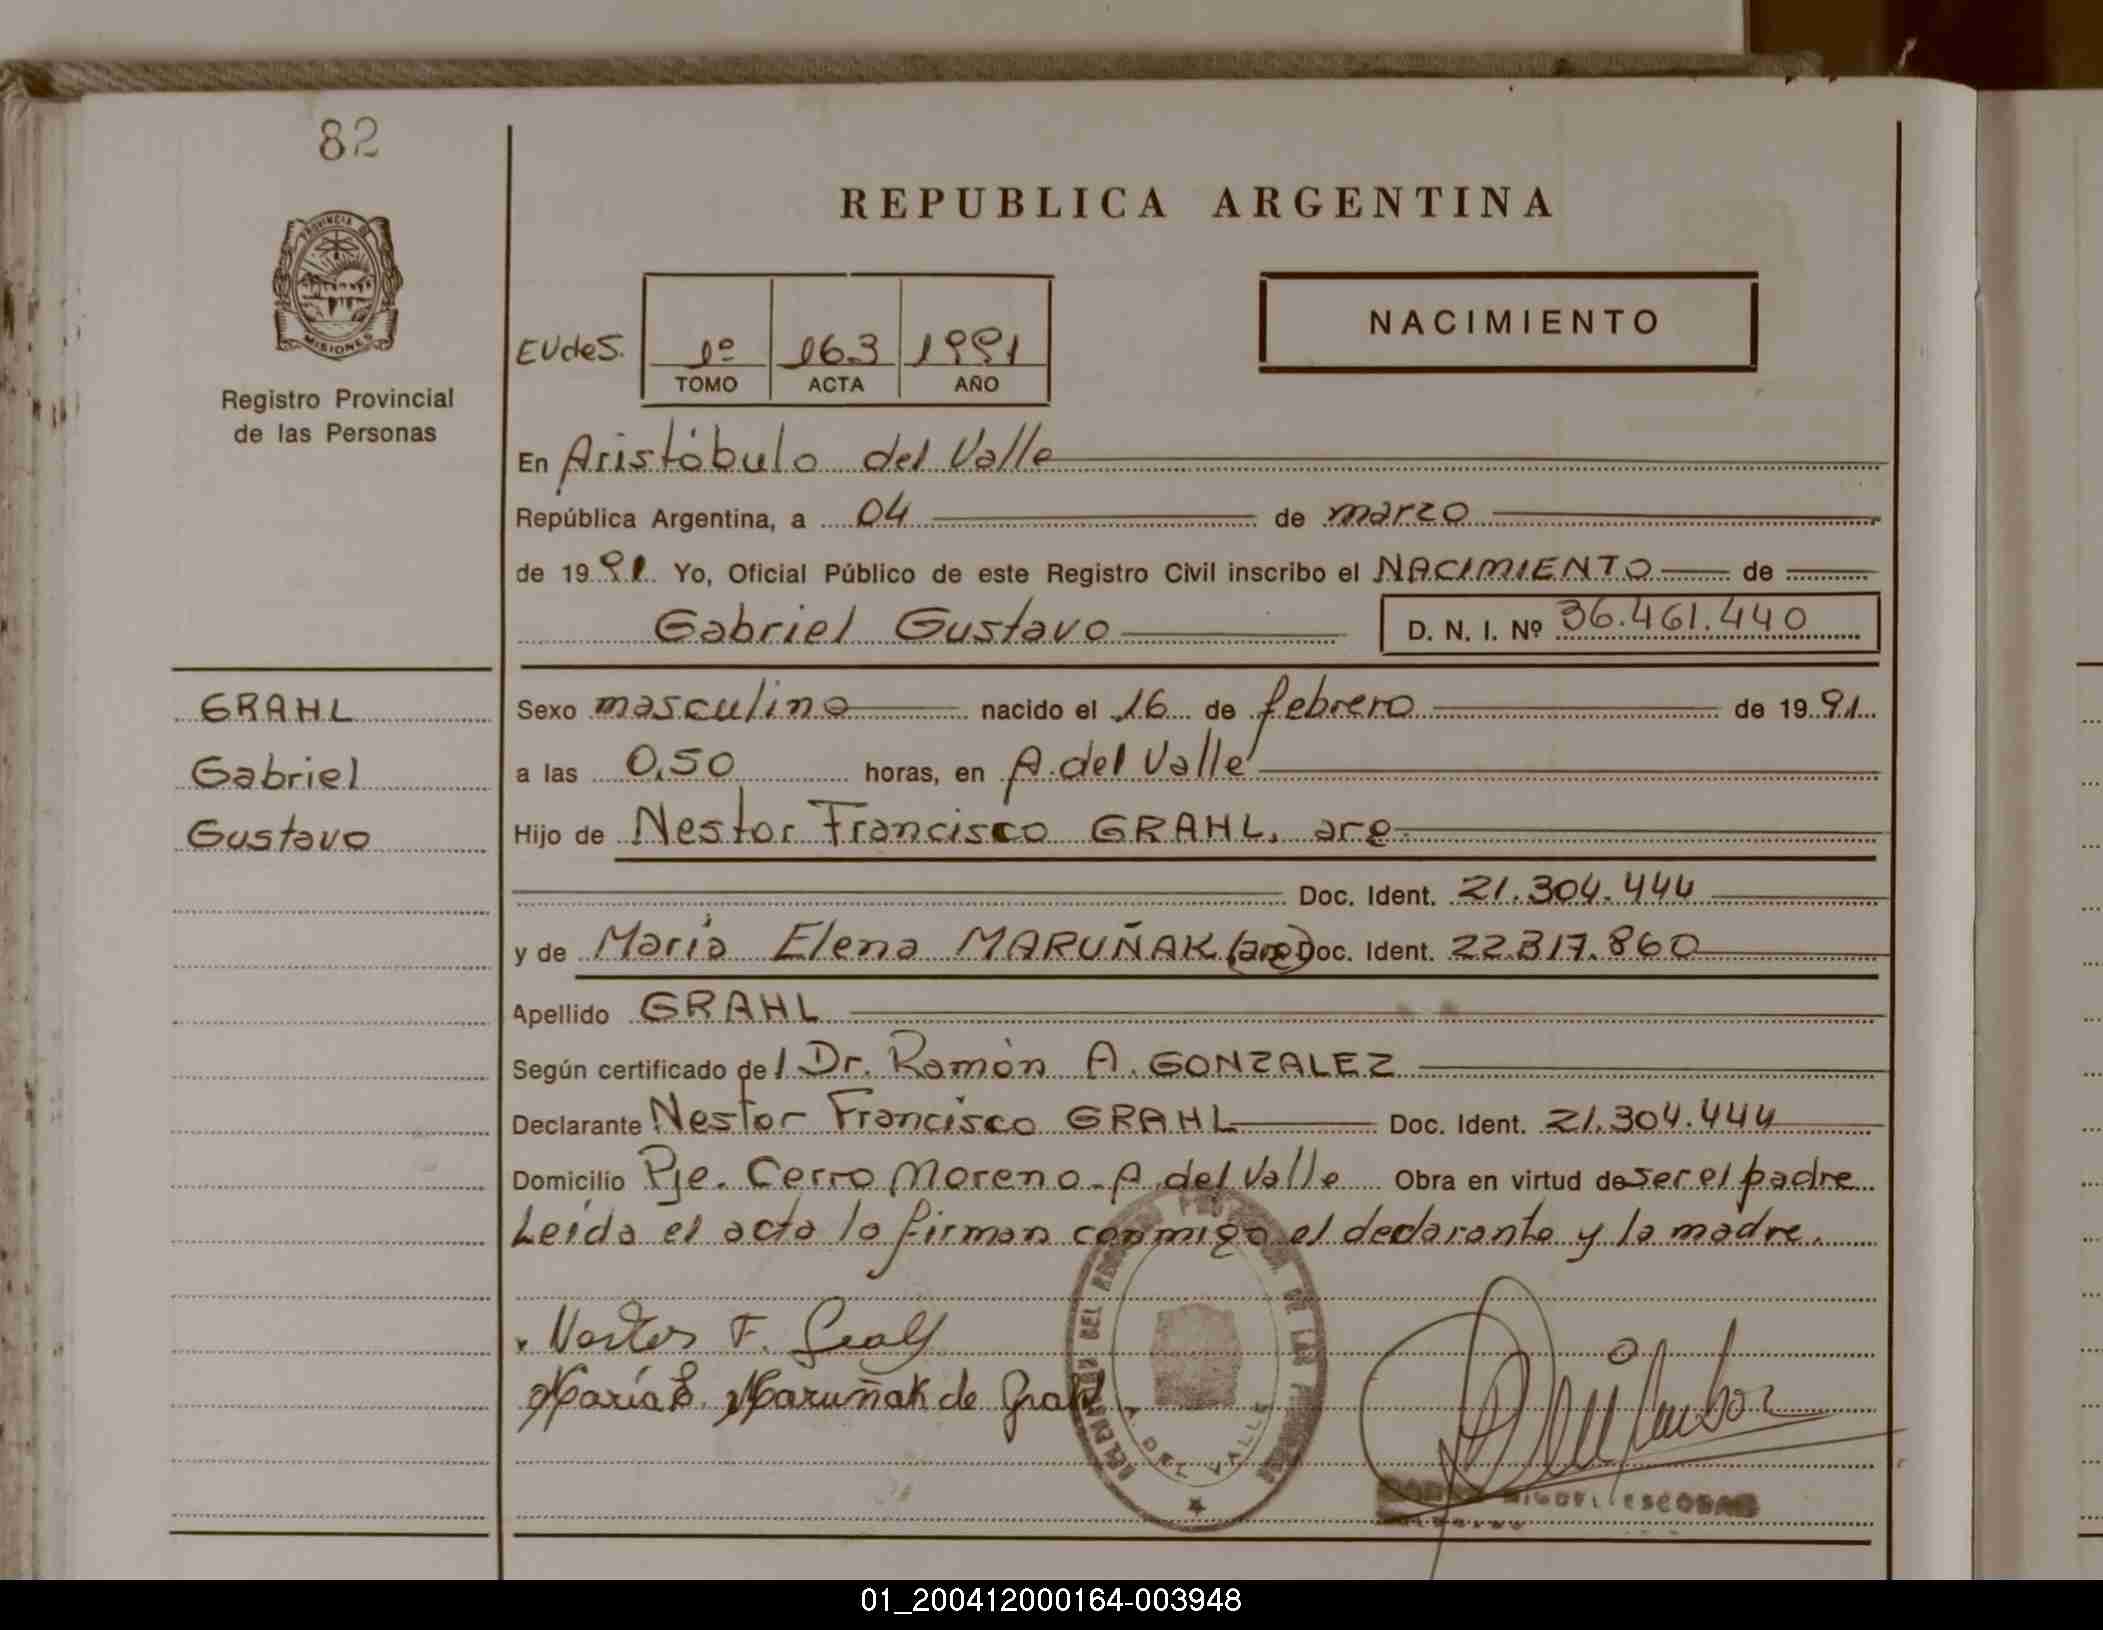 82
REPUBLICA ARGENTINA
PROVINCIA DE
MISIONES
Registro Provincial
de las Personas
NACIMIENTO
EUdeS. 1º 163 1991
TOMO ACTA AÑO
En Aristóbulo del Valle
República Argentina, a 04 de marzo
de 1991. Yo, Oficial Público de este Registro Civil inscribo el NACIMIENTO de
Gabriel Gustavo D. N. I. Nº 36.461.440
GRAHL
Gabriel
Gustavo
Sexo masculino nacido el 16 de febrero de 1991
a las 0,50 horas, en A. del Valle
Hijo de Nestor Francisco GRAHL, arg.
Doc. Ident. 21.304.444
y de María Elena MARUÑAK (arg) Doc. Ident. 22.817.860
Apellido GRAHL
Según certificado del Dr. Ramón A. GONZALEZ
Declarante Nestor Francisco GRAHL Doc. Ident. 21.304.444
Domicilio Pje. Cerro Moreno - A. del Valle Obra en virtud de ser el padre
Leída el acta la firman conmigo el declarante y la madre.
Nestor F. Grahl
María E. Maruñak de Grahl
A. DEL VALLE
MIGUEL ESCOBAR
01_200412000164-003948